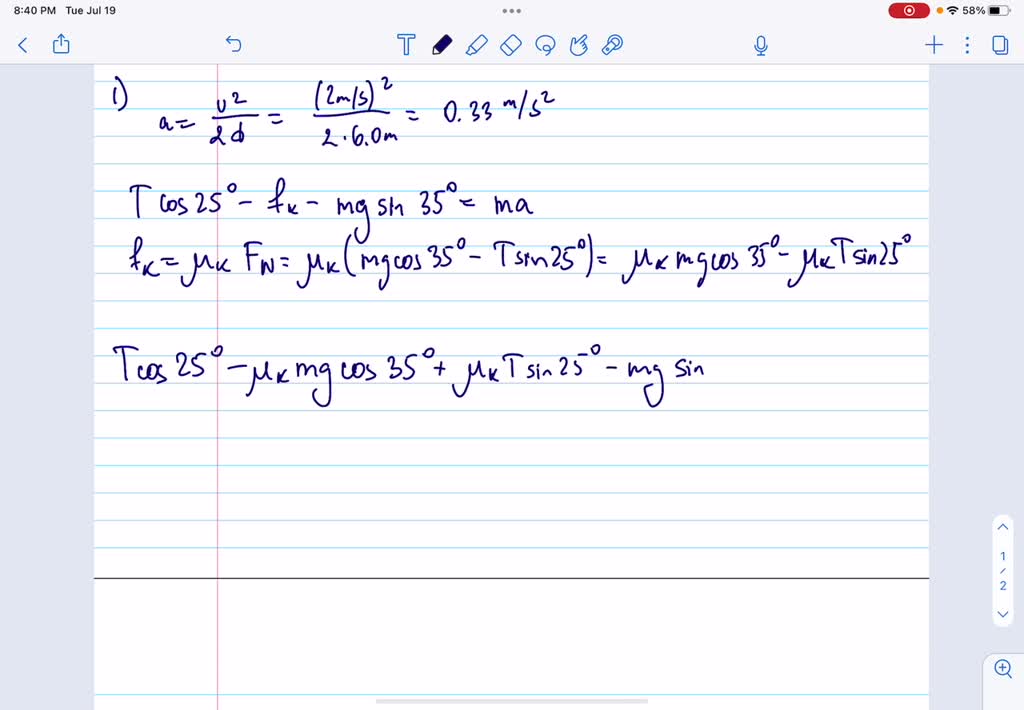 8:40 PM Tue Jul 19
58%
1)
a = v²/2d = (2m/s)²/2·6.0m = 0.33 m/s²
T cos 25° - fk - mg sin 35° = ma
fk = μk FN = μk (mg cos 35° - T sin 25°) = μk mg cos 35° - μk T sin 25°
T cos 25° - μk mg cos 35° + μk T sin 25° - mg sin
1
/
2